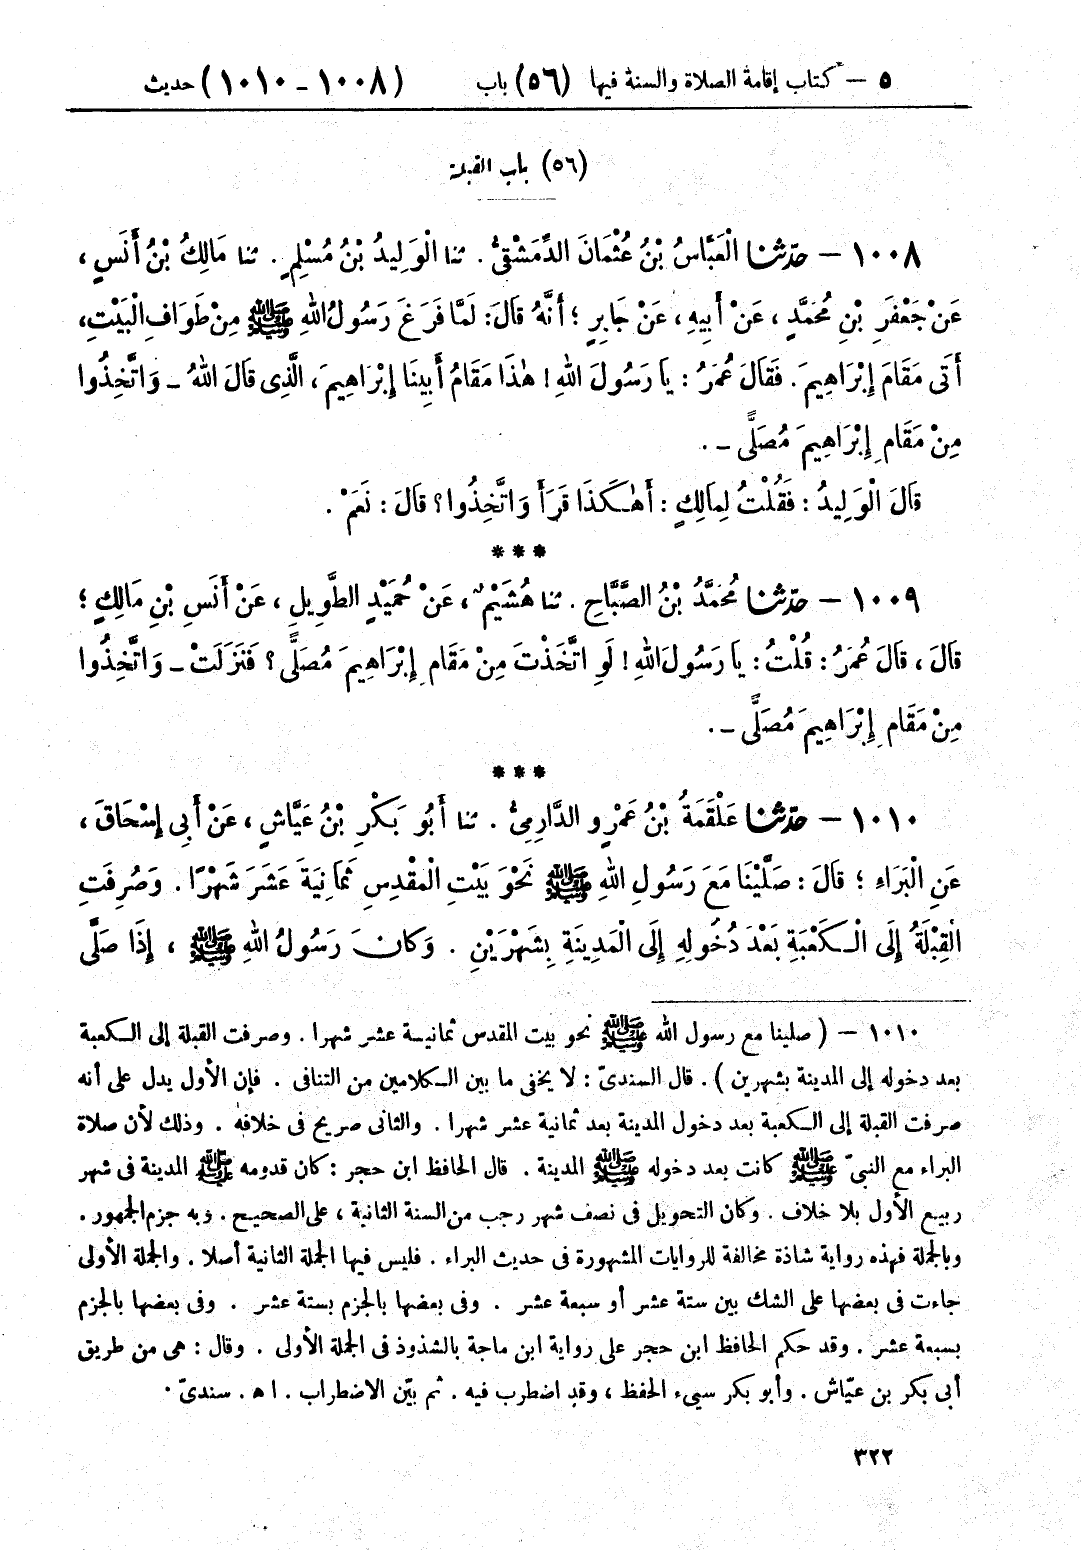 ٥ – كتاب إقامة الصلاة والسنة فيها (٥٦) باب (١٠٠٨ – ١٠١٠) حديث
(٥٦) باب القبلة
١٠٠٨ – حَدَّثَنَا الْعَبَّاسُ بْنُ عُثْمَانَ الدِّمَشْقِيُّ . ثنا الْوَلِيدُ بْنُ مُسْلِمٍ . ثنا مَالِكُ بْنُ أَنَسٍ ،
عَنْ جَعْفَرِ بْنِ مُحَمَّدٍ ، عَنْ أَبِيهِ ، عَنْ جَابِرٍ ؛ أَنَّهُ قَالَ : لَمَّا فَرَغَ رَسُولُ اللهِ ﷺ مِنْ طَوَافِ الْبَيْتِ ،
أَتَى مَقَامَ إِبْرَاهِيمَ . فَقَالَ عُمَرُ : يَا رَسُولَ اللهِ ! هٰذَا مَقَامُ أَبِينَا إِبْرَاهِيمَ ، الَّذِى قَالَ اللهُ – وَاتَّخِذُوا
مِنْ مَقَامِ إِبْرَاهِيمَ مُصَلًّى – .
قَالَ الْوَلِيدُ : فَقُلْتُ لِمَالِكٍ : أَهٰكَذَا قَرَأَ وَاتَّخِذُوا ؟ قَالَ : نَعَمْ .
***
١٠٠٩ – حَدَّثَنَا مُحَمَّدُ بْنُ الصَّبَّاحِ . ثنا هُشَيْمٌ ، عَنْ حُمَيْدٍ الطَّوِيلِ ، عَنْ أَنَسِ بْنِ مَالِكٍ ؛
قَالَ ، قَالَ عُمَرُ : قُلْتُ : يَا رَسُولَ اللهِ ! لَوِ اتَّخَذْتَ مِنْ مَقَامِ إِبْرَاهِيمَ مُصَلًّى ؟ فَنَزَلَتْ – وَاتَّخِذُوا
مِنْ مَقَامِ إِبْرَاهِيمَ مُصَلًّى – .
***
١٠١٠ – حَدَّثَنَا عَلْقَمَةُ بْنُ عَمْرٍو الدَّارِمِيُّ . ثنا أَبُو بَكْرِ بْنُ عَيَّاشٍ ، عَنْ أَبِى إِسْحَاقَ ،
عَنِ الْبَرَاءِ ؛ قَالَ : صَلَّيْنَا مَعَ رَسُولِ اللهِ ﷺ نَحْوَ بَيْتِ الْمَقْدِسِ ثَمَانِيَةَ عَشَرَ شَهْرًا . وَصُرِفَتِ
الْقِبْلَةُ إِلَى الْكَعْبَةِ بَعْدَ دُخُولِهِ إِلَى الْمَدِينَةِ بِشَهْرَيْنِ . وَكَانَ رَسُولُ اللهِ ﷺ ، إِذَا صَلَّى
١٠١٠ – ( صلينا مع رسول الله ﷺ نحو بيت المقدس ثمانية عشر شهرا . وصرفت القبلة إلى الكعبة
بعد دخوله إلى المدينة بشهرين ) . قال السندىّ : لا يخفى ما بين الكلامين من التنافى . فإن الأول يدل على أنه
صرفت القبلة إلى الكعبة بعد دخول المدينة بعد ثمانية عشر شهرا . والثانى صريح فى خلافه . وذلك لأن صلاة
البراء مع النبىّ ﷺ كانت بعد دخوله ﷺ المدينة . قال الحافظ ابن حجر : كان قدومه ﷺ المدينة فى شهر
ربيع الأول بلا خلاف . وكان التحويل فى نصف شهر رجب من السنة الثانية ، على الصحيح . وبه جزم الجمهور .
وبالجملة فهذه رواية شاذة مخالفة للروايات المشهورة فى حديث البراء . فليس فيها الجملة الثانية أصلا . والجملة الأولى
جاءت فى بعضها على الشك بين ستة عشر أو سبعة عشر . وفى بعضها بالجزم بستة عشر . وفى بعضها بالجزم
بسبعة عشر . وقد حكم الحافظ ابن حجر على رواية ابن ماجة بالشذوذ فى الجملة الأولى . وقال : هى من طريق
أبى بكر بن عيّاش . وأبو بكر سيىء الحفظ ، وقد اضطرب فيه . ثم بيّن الاضطراب . اه . سندىّ .
٣٢٢